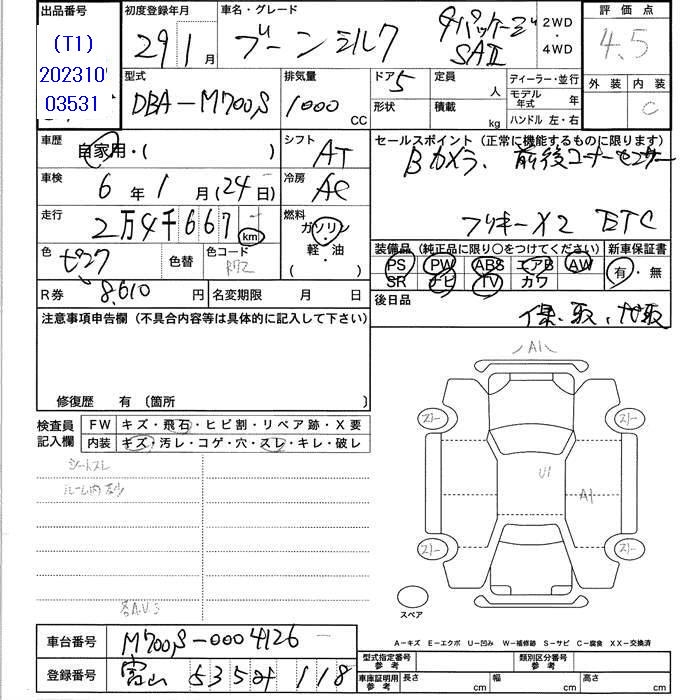 出品番号
(T1)
202310
03531
初度登録年月
29 1 月
車名・グレード
ブーンシルク
Gパッケージ
SAⅡ
2WD
・
4WD
評価点
4.5
外装 内装
C
型式
DBA-M700S
排気量
1000 CC
ドア 5
形状
定員 人
積載 kg
ディーラー・並行
モデル年式 年
ハンドル 左・右
車歴
自家用・( )
シフト
AT
車検
6 年 1 月(24日)
冷房
AC
走行
2万4千667 km
燃料
ガソリン
軽・油
( )
色
色替
色コード
R72
R券 8,610 円
名変期限 月 日
セールスポイント(正常に機能するものに限ります)
Bカメラ、前後コーナーセンサー
フリキーX2 ETC
装備品(純正品に限り○をつけてください)
PS PW ABS エアB AW
SR ナビ TV カワ
新車保証書
有・無
後日品
注意事項申告欄(不具合内容等は具体的に記入して下さい)
修復歴 有〔箇所 〕
検査員
記入欄
FW キズ・飛石・ヒビ割・リペア跡・X要
内装 キズ・汚レ・コゲ・穴・スレ・キレ・破レ
シートスレ
A1
スリー
スリー
U1
A1
スリー
スリー
スペア
A-キズ E-エクボ U-凹み W-補修跡 S-サビ C-腐食 XX-交換済
車台番号 M700S-0004126
登録番号 富山 535 118
型式指定番号
参考
類別区分番号
参考
車庫証明用
参考
長さ cm
幅 cm
高さ cm